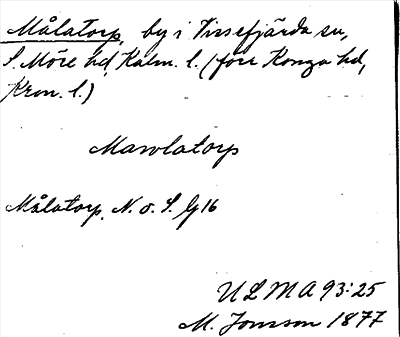 Målatorp, by i Vissefjärda sn,
S. Möre hd, Kalm. l. (förr Konga hd,
Kron. l.)
Mawlatorp
Målatorp, N. o. S. G 16
ULMA 93:25
M. Jonsson 1877